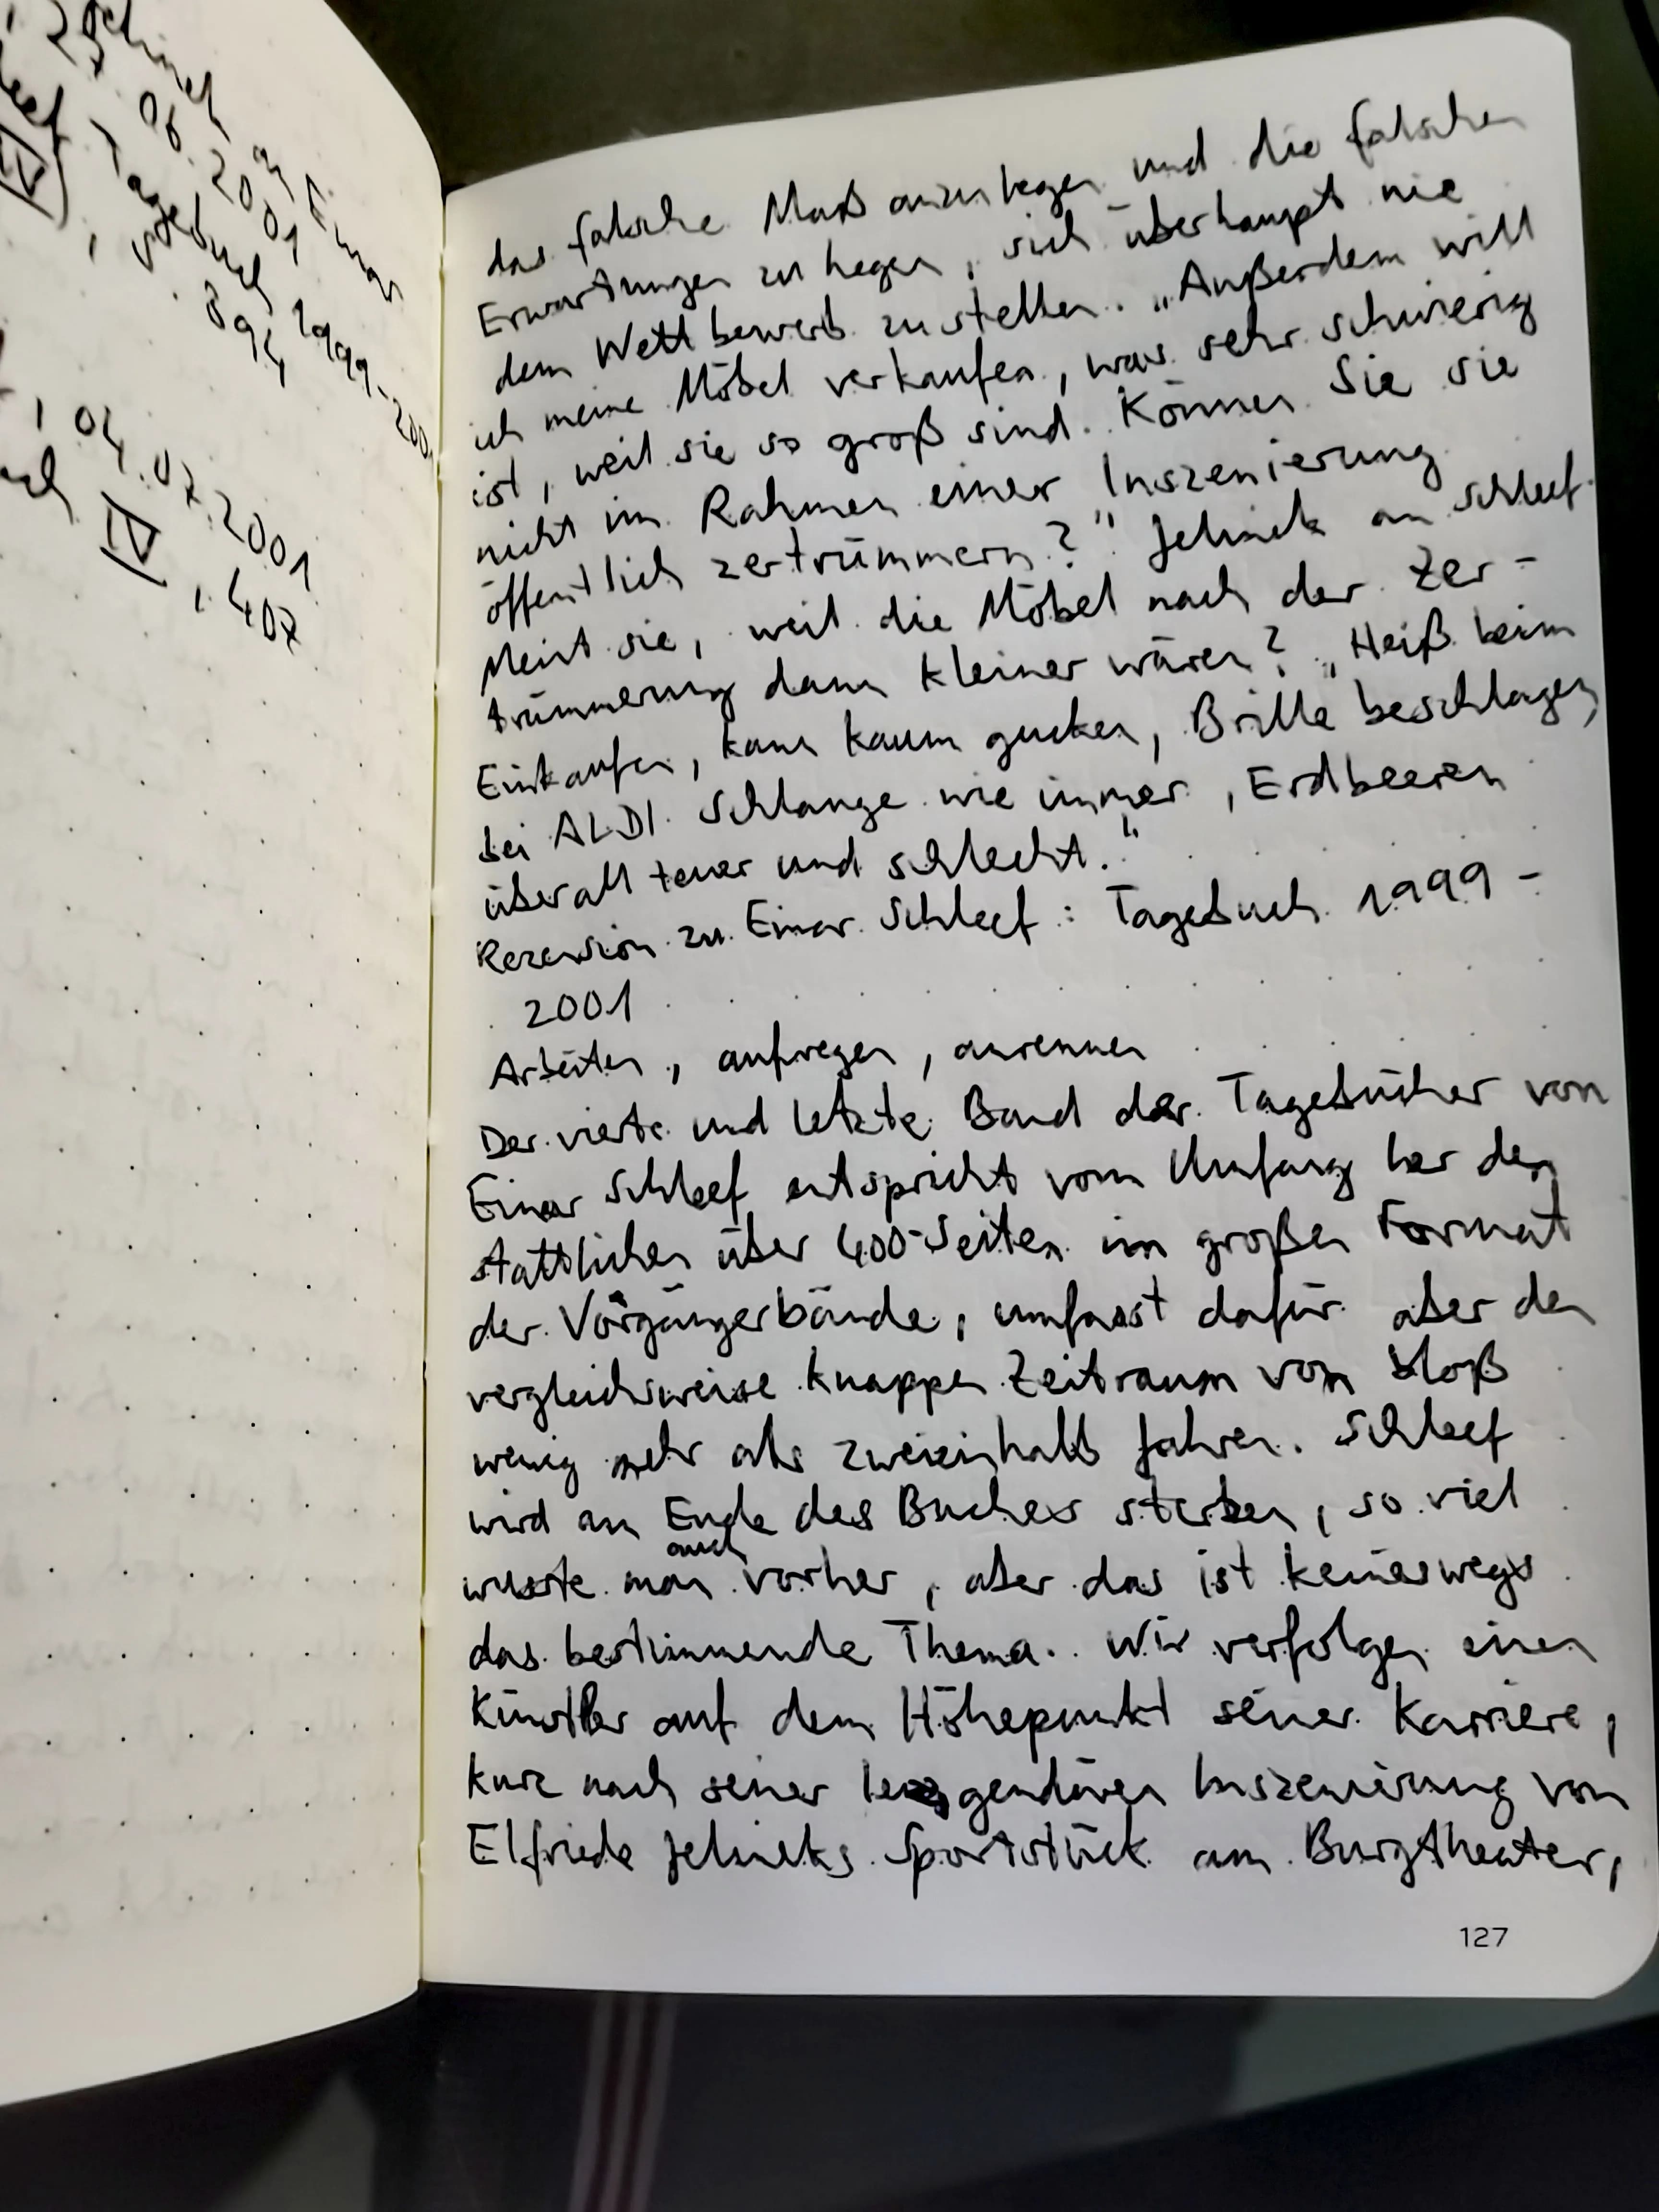 Jelinek an Einar
27.06.2001
Tagebuch 1999-2001
IV, S. 394
, 04.07.2001
IV, 407
das falsche Maß anzulegen und die falschen
Erwartungen zu hegen, sich überhaupt nie
dem Wettbewerb zu stellen. „Außerdem will
ich meine Möbel verkaufen, was sehr schwierig
ist, weil sie so groß sind. Können Sie sie
nicht im Rahmen einer Inszenierung
öffentlich zertrümmern?" Jelinek an Schleef.
Meint sie, weil die Möbel nach der Zer-
trümmerung dann kleiner wären? „Heiß beim
Einkaufen, kann kaum gucken, Brille beschlagen,
bei ALDI Schlange wie immer, Erdbeeren
überall teuer und schlecht."
Rezension zu Einar Schleef: Tagebuch 1999-
2001
Arbeiten, aufregen, anrennen
Der vierte und letzte Band der Tagebücher von
Einar Schleef entspricht vom Umfang her den
stattlichen über 400 Seiten im großen Format
der Vorgängerbände, umfasst dafür aber den
vergleichsweise knappen Zeitraum von bloß
wenig mehr als zweieinhalb Jahren. Schleef
wird am Ende des Buches sterben, so viel
wusste man auch vorher, aber das ist keineswegs
das bestimmende Thema. Wir verfolgen einen
Künstler auf dem Höhepunkt seiner Karriere,
kurz nach seiner legendären Inszenierung von
Elfriede Jelineks Sportstück am Burgtheater,
127